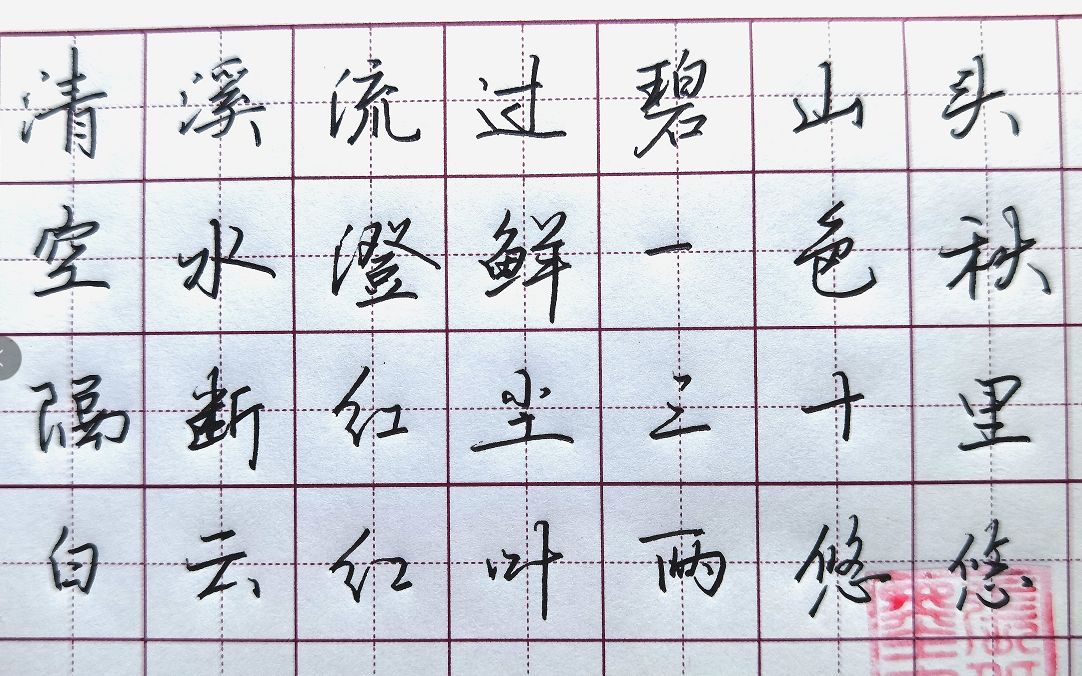 清溪流过碧山头
空水澄鲜一色秋
隔断红尘三十里
白云红叶两悠悠